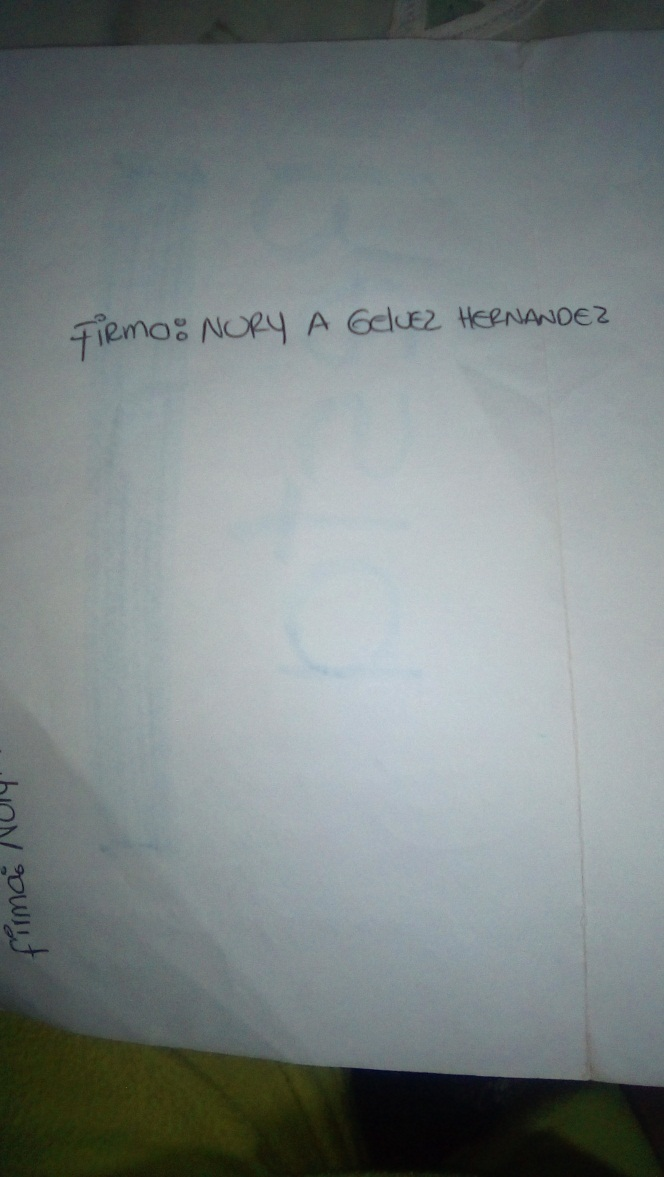 Firmo: NORY A Gelvez HERNANDEZ
firma: Nory